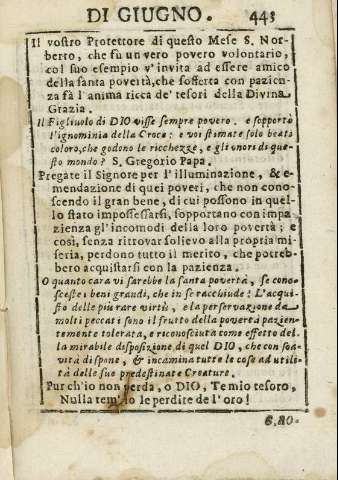 DI GIUGNO. 443
Il vostro Protettore di questo Mese S. Nor-
berto, che fu un vero povero volontario,
col suo esempio v'invita ad essere amico
della santa povertà, che sofferta con pazien-
za fà l'anima ricca de' tesori della Divina
Grazia.
Il Figliuolo di DIO visse sempre povero, e sopportò
l'ignominia della Croce: e voi stimate solo beato
coloro, che godono le ricchezze, e gli vnori di que-
sto mondo? S. Gregorio Papa.
Pregate il Signore per l'illuminazione, & e-
mendazione di quei poveri, che non cono-
scendo il gran bene, di cui possono in quel-
lo stato impossessarsi, sopportano con impa
zienza gl'incomodi della loro povertà; e
così, senza ritrovar solievo alla propria mi-
seria, perdono tutto il merito, che potreb-
bero acquistarsi con la pazienza.
O quanto cara vi sarebbe la santa povertà, se cono-
sceste i beni grandi, che in se racchiude! L'acqui-
sto delle più rare virtù, e la perservazione da
molti peccati sono il frutto della povertà pazien-
temente tolerata, e riconosciuta come effetto del-
la mirabile disposizione di quel DIO, che con soa-
vità dispone, & incamina tutte le cose ad utili-
tà delle sue predestinate Creature.
Pur ch'io non perda, o DIO, Te mio tesoro,
Nulla tem' io le perdite de l'oro!
6. AO.